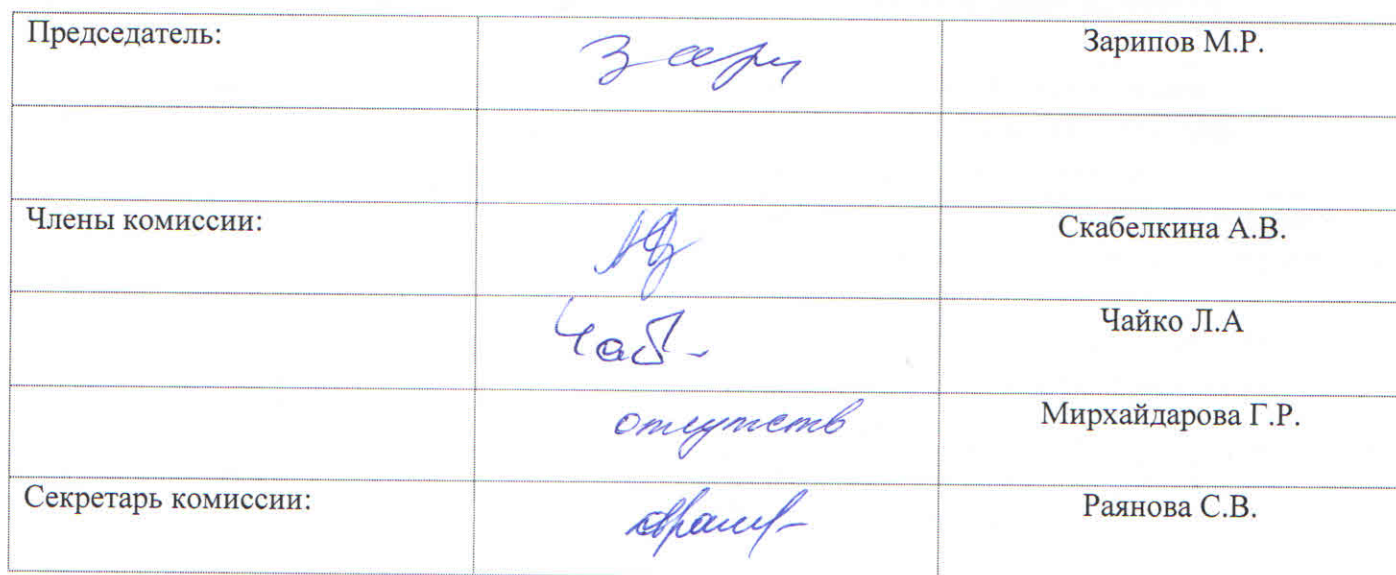 Председатель: Зари Зарипов М.Р.
Члены комиссии: Скабелкина А.В.
Чайко Л.А
отсутств Мирхайдарова Г.Р.
Секретарь комиссии: Раянова С.В.